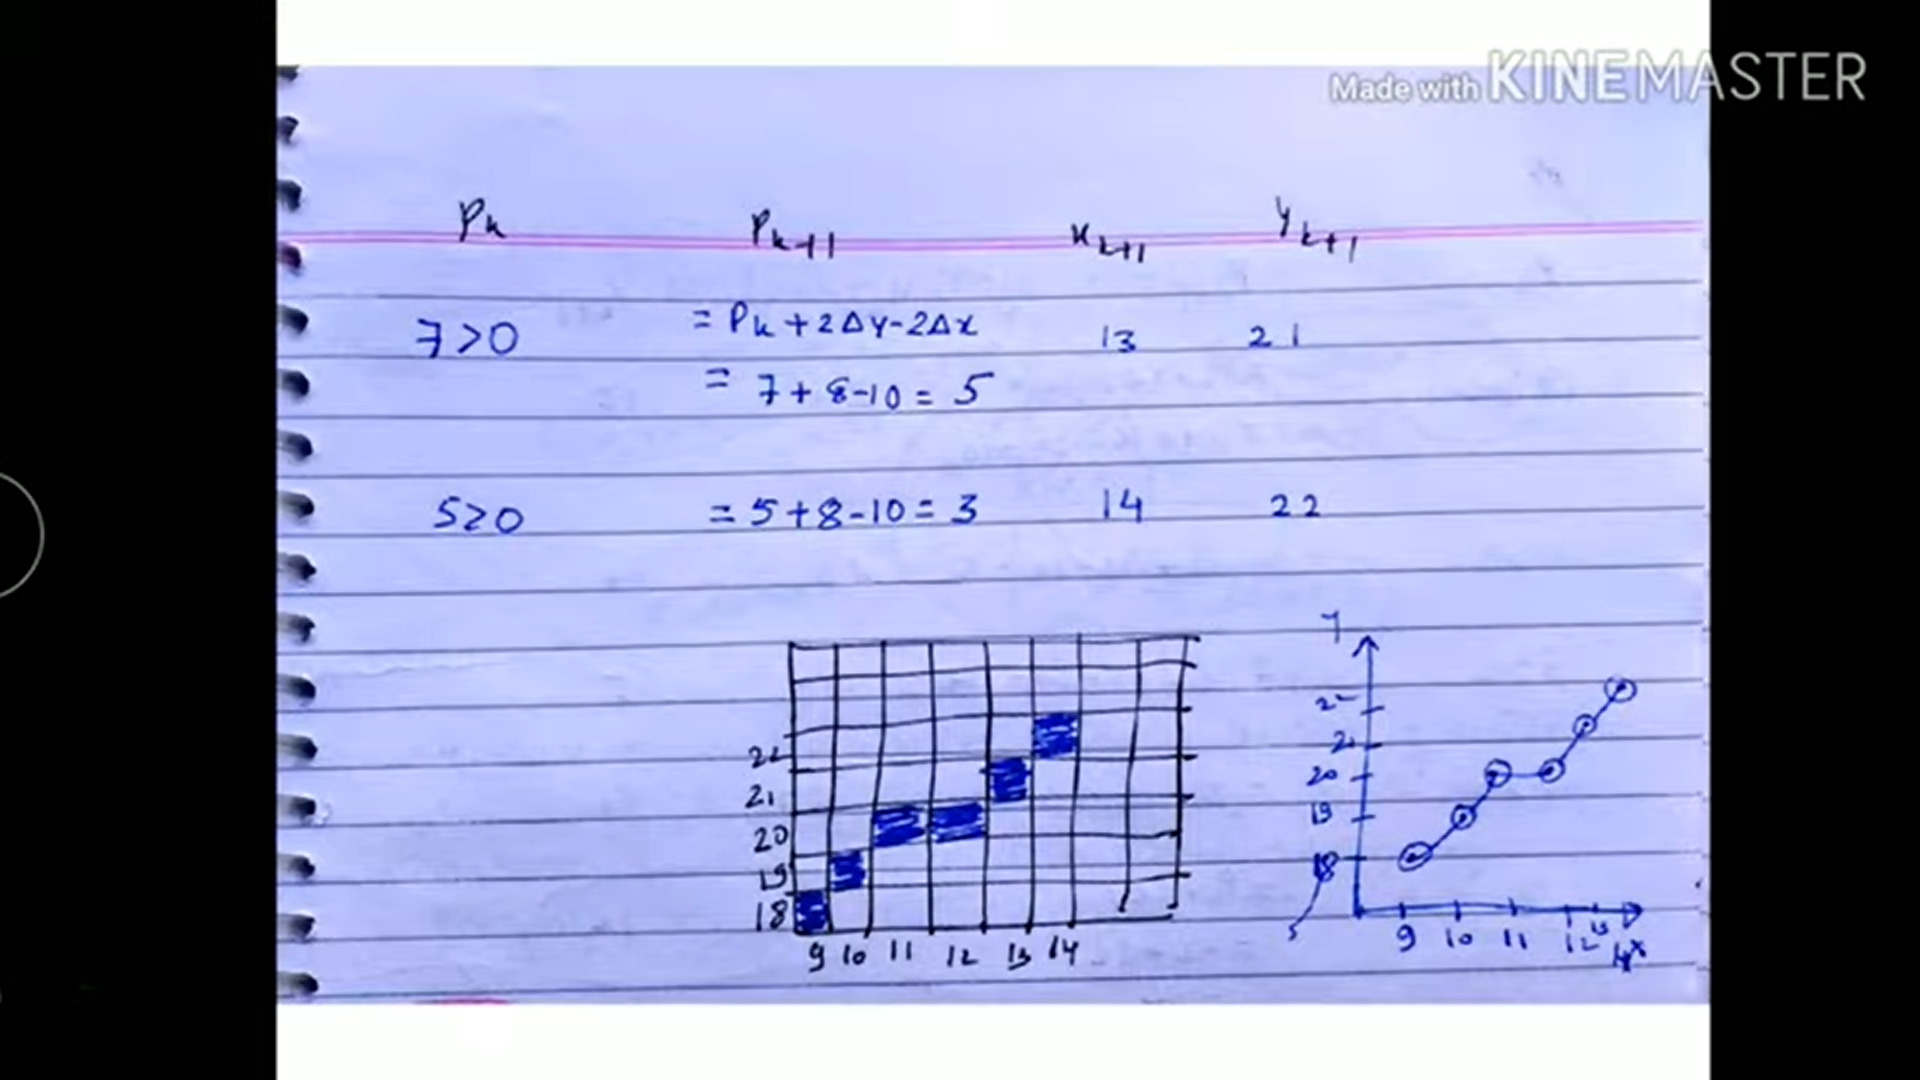 Made with KINEMASTER
Pk Pk+1 xk+1 yk+1
7>0 = Pk + 2Δy-2Δx 13 21
= 7 + 8-10 = 5
5≥0 = 5+8-10 = 3 14 22
22
21
20
19
18
9 10 11 12 13 14
y
22
21
20
19
18
9 10 11 12 13
14 x